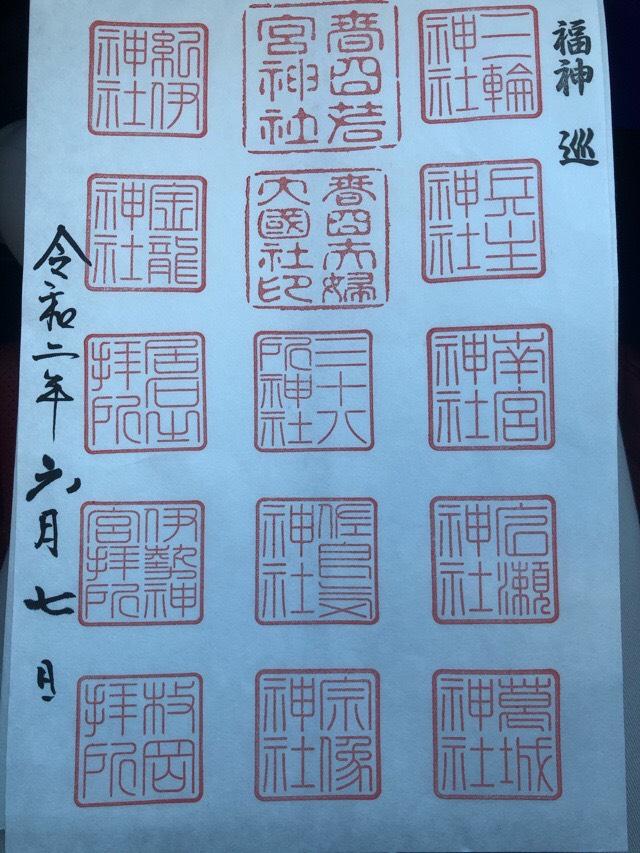 福神巡
三輪
神社
兵主
神社
南宮
神社
広瀬
神社
葛城
神社
春日若
宮神社
春日夫婦
大國社印
三十八
所神社
佐良气
神社
宗像
神社
紀伊
神社
金龍
神社
拝所
伊勢神
宮拝所
枚岡
拝所
令和二年六月七日